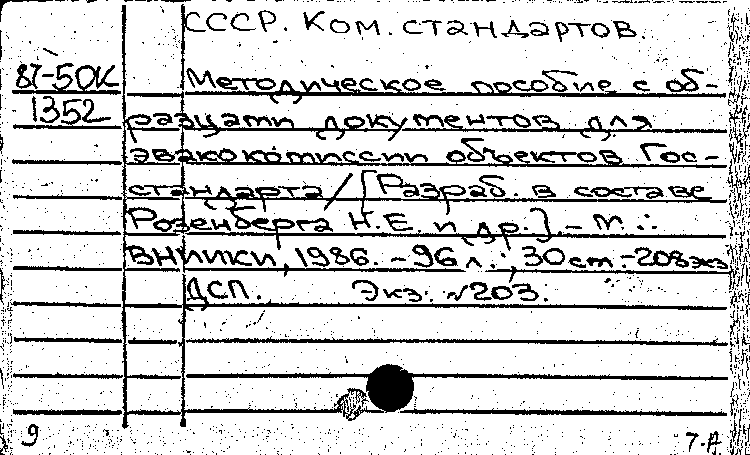 СССР. Ком. стандартов.
87-50К Методическое пособие с об-
1352 разцами документов для
эвакокомиссии объектов Гос-
стандарта / [Разраб. в составе
Розенберга Н.Е. и др.] - М.:
ВНИИКИ, 1986. - 96 л.; 30 см. - 208 экз
ДСП. Экз. №203.
9 7-А